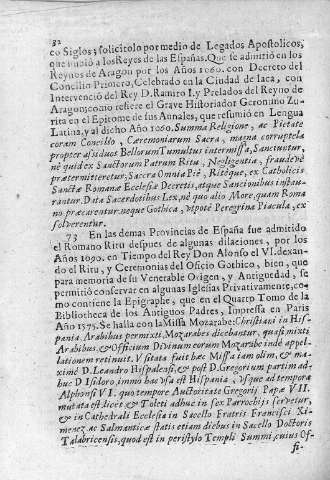 82
co Siglos; solicitolo por medio de Legados Apostolicos,
que embiò a los Reyes de las Españas. Que se admitiò en los
Reynos de Aragon por los Años 1060. con Decreto del
Concilio Primero, Celebrado en la Ciudad de Iaca, con
Intervenciò del Rey D. Ramiro I. y Prelados del Reyno de
Aragon; como refiere el Grave Historiador Geronimo Zu-
rita en el Epitome de sus Annales, que resumiò en Lengua
Latina, y al dicho Año 1060. Summa Religione, ac Pietate
coram Concilio, Cæremoniarum Sacra, magna corruptela
propter assiduos Bellorum Tumultus intermissa, Sanciuntur,
nè quid ex Sanctorum Patrum Ritu, Negligentia, fraudenè
prætermitteretur. Sacra Omnia Piè, Ritèque, ex Catholicis
Sanctæ Romanæ Ecclesiæ Decretis, atque Sanctionibus instau-
rantur. Data Sacerdotibus Lex, nè quo alio More, quam Roma-
no præcarentur, neque Gothica, vtpotè Peregrina Piacula, ex-
solverentur.
73 En las demas Provincias de España fue admitido
el Romano Ritu despues de algunas dilaciones, por los
Años 1090. en Tiempo del Rey Don Alonso el VI. dexan-
do el Ritu, y Ceremonias del Oficio Gothico, bien, que
para memoria de su Venerable Origen, y Antiguedad, se
permitiò conservar en algunas Iglesias Privativamente, co-
mo contiene la Epigraphe, que en el Quarto Tomo de la
Bibliotheca de los Antiguos Padres, Impressa en Paris
Año 1575. Se halla con la Missa Mozarabe: Christiani in His-
pania. Arabibus permixti. Mozarabes dicebantur, quasi mixti
Arabibus. & Officium Divinum eorum Mozarabe indè appel-
lationem retinuit. Vsitata fuit hæc Missa iam olim, & ma-
ximè D. Leandro Hispalensi, & post D. Gregorium partim ad-
huc D. Isidoro, immò hac vsa est Hispania, vsque ad tempora
Alphonsi VI. quo tempore Auctoritate Gregorij Papæ VII.
mutata est: licet & Toleti adhuc in sex Parrochijs servetur,
& in Cathedrali Ecclesia in Sacello Fratris Francisci Xi-
menez, ac Salmanticæ statis etiam diebus in Sacello Doctoris
Talabricensis, quod est in peristylo Templi Summi, cuius Of-
fi-